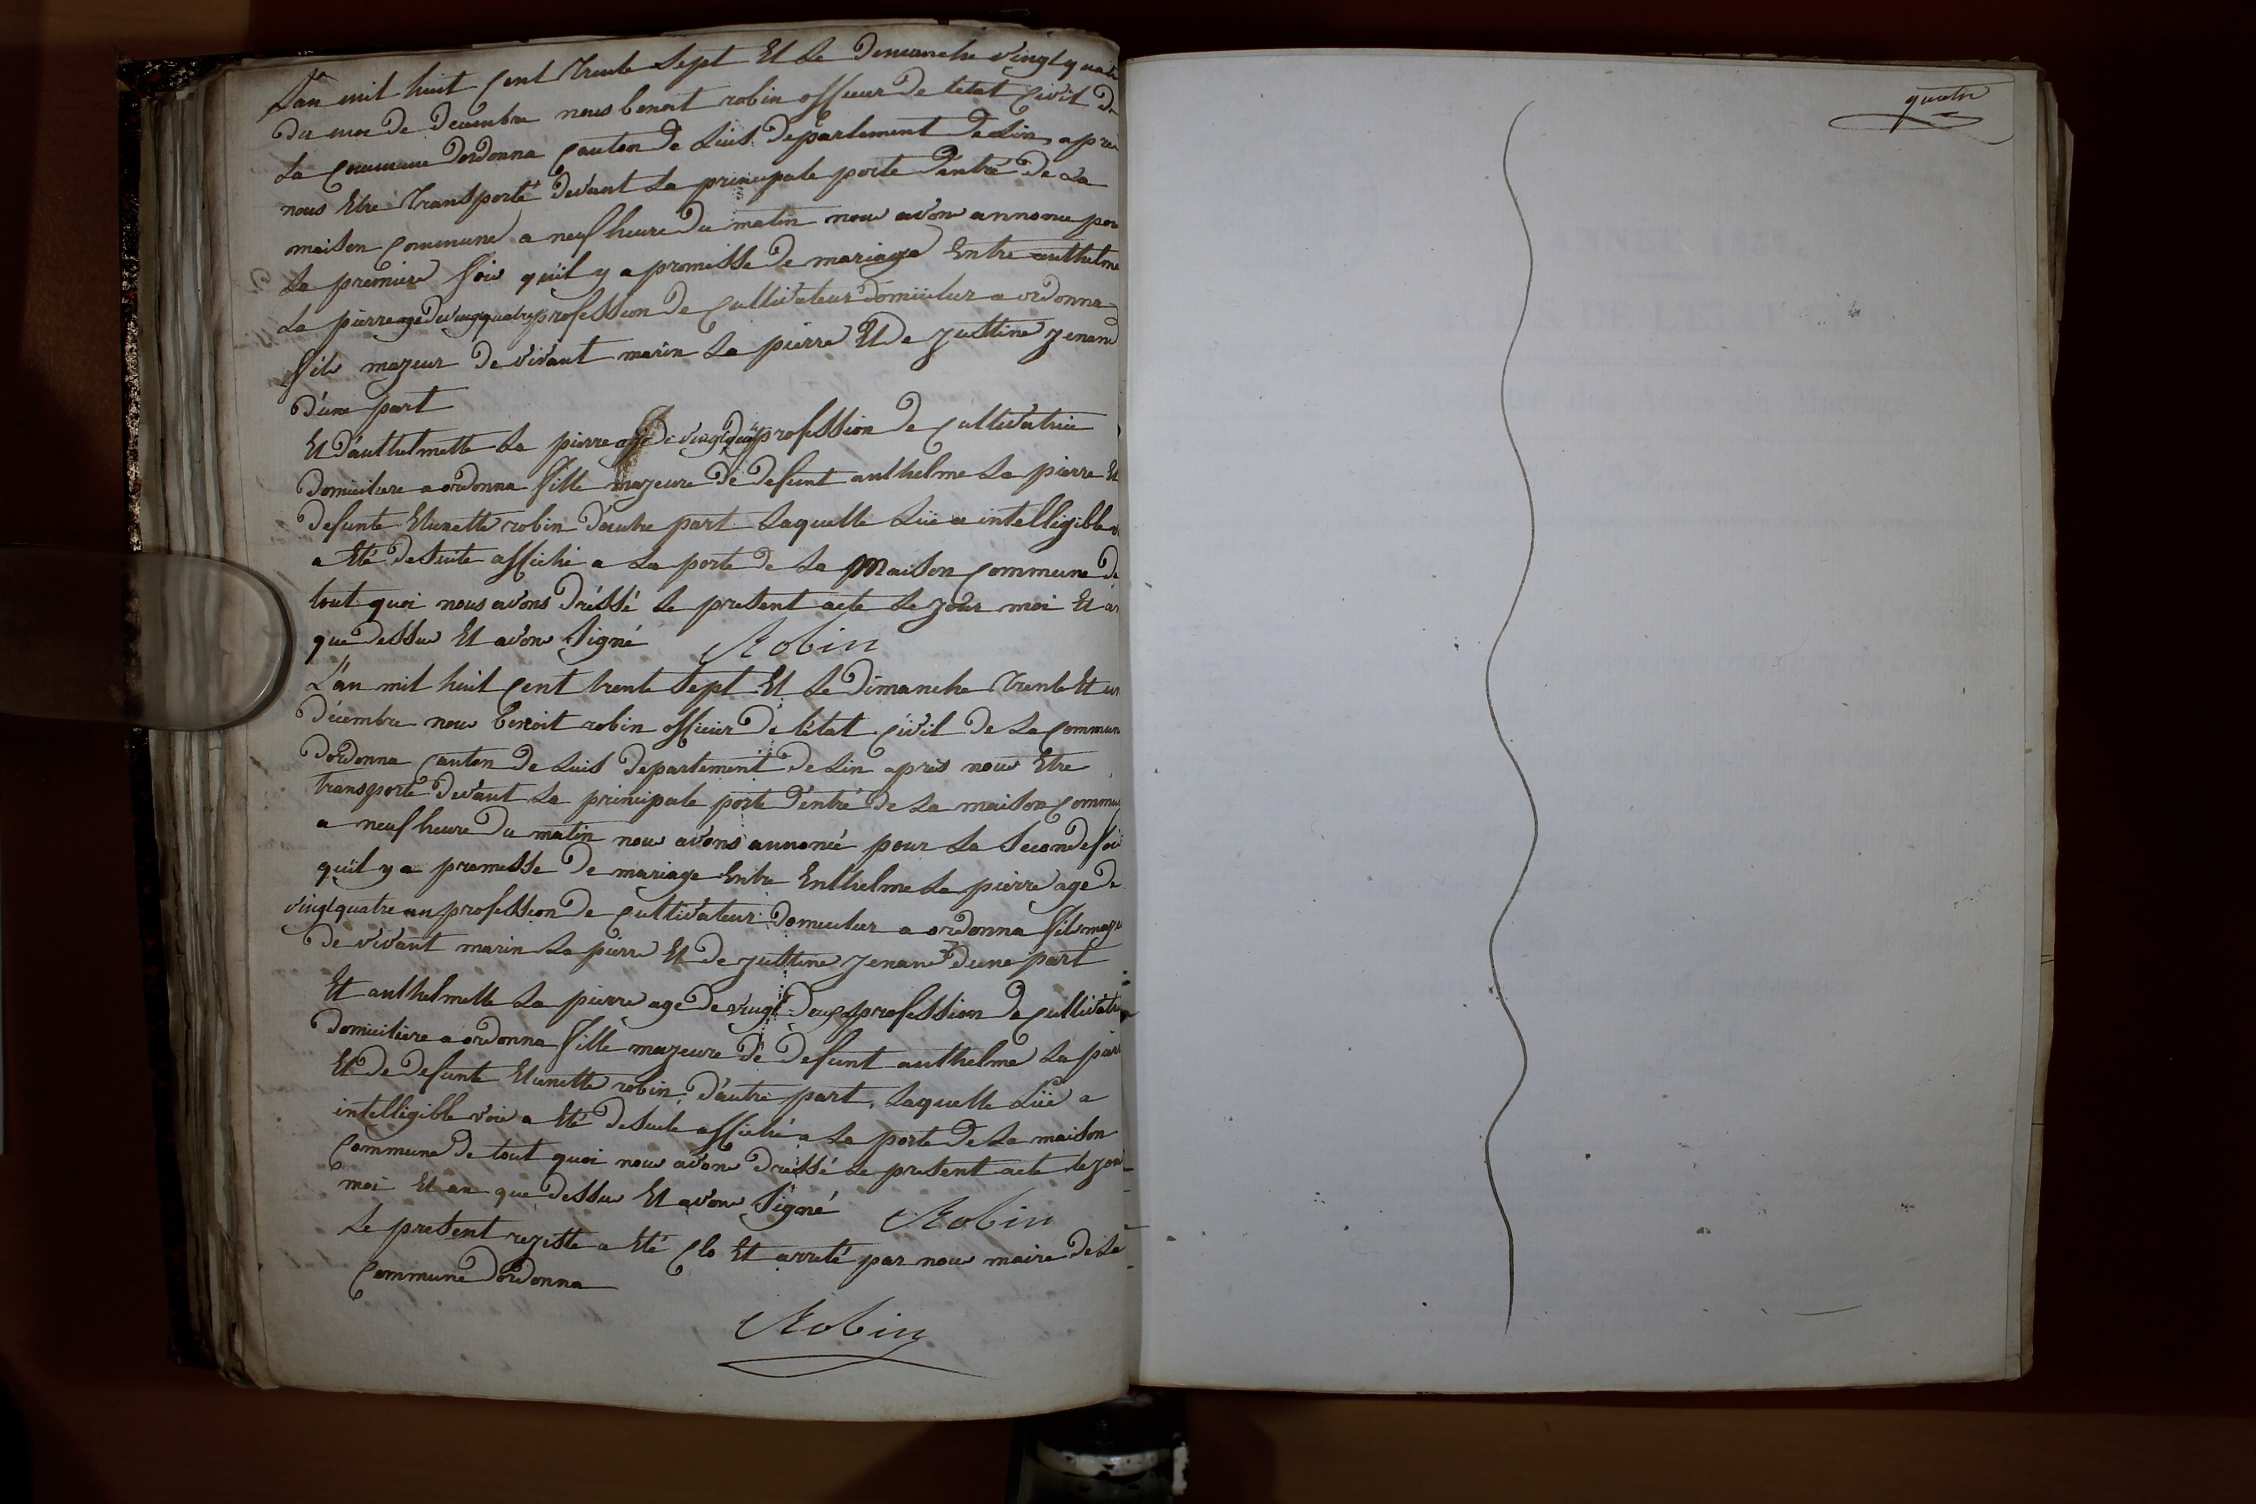 L'an mil huit Cent Trente Sept Et Le Dimanche vingt quatre
Du moi De Decembre nous benoit robin officier De letat Civil De
La Commune Dordonna Canton De Luis Departement De Lin apres
nous Etre Transporté Devant La principale porte D'entré De La
maison Commune a neuf heure Du matin nous avons annonce pour
La premiere fois qu'il y a promesse De mariage Entre anthelme
La pierre agé De vingt quatre profession De Cultivateur Domicilier a ordonna
fils majeur De vivant marin La pierre Et De Justine Jenand
D'une part
Et D'anthelmette La pierre agé De vingt Deux profession De Cultivatrice
Domiciliere a ordonna fille majeure De Defunt anthelme La pierre Et
Defunte Etienette robin D'autre part Laquelle Lüe a intelligible
a Eté De Suite affiché a La porte De La Maison Commune De
tout quoi nous avons Dréssé Le present acte Le Jour moi Et an
que Dessus Et avons Signé Robin
L'an mil huit Cent trente Sept Et Le Dimanche Trente Et un
Décembre nous Benoit robin officier De létat Civil De La Commune
Dordonna Canton De Luis Departement De Lin apres nous Etre
transporté Devant La principale porte D'entré De La maison Commune
a neuf heure Du matin nous avons annoncé pour La Seconde fois
qu'il y a promesse De mariage Entre Enthelme La pierre age De
vingt quatre an profession De Cultivateur Domicilier a ordonna fils majeur
De vivant marin La pierre Et De Justine Jenand D'une part
Et anthelmette La pierre age De vingt Deux profession De Cultivatrice
Domiciliere a ordonna fille majeure De Defunt anthelme La pierre
Et De Defunte Etienette robin D'autre part, Laquelle Lüe a
intelligible voix a Eté De Suite affiché a La porte De La maison
Commune De tout quoi nous avons Dressé Le present acte Le Jour
moi Et an que Dessus Et avons Signé Robin
Le present registe a Eté Clo Et arreté par nous maire De La
Commune Dordonna
Robin
quatre